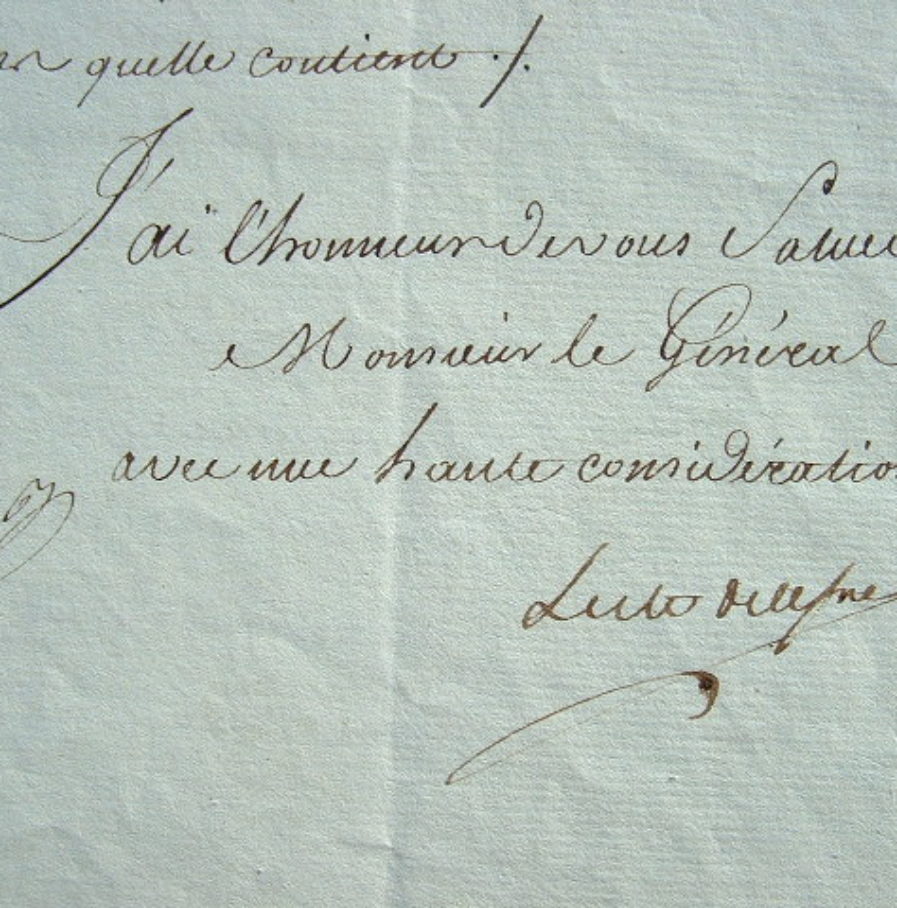 quelle contient ./.
J'ai l'honneur de vous Saluer
Monsieur le Général
avec une haute considération